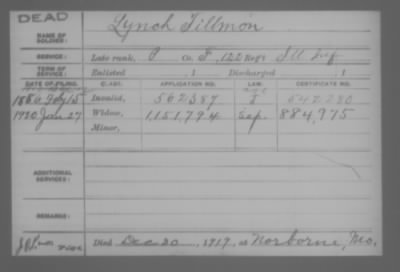 DEAD
NAME OF SOLDIER: Lynch Tillmon
SERVICE: Late rank, P Co. F, 122 Reg't Ill Inf
TERM OF SERVICE: Enlisted 1 Discharged 1
DATE OF FILING. CLASS. APPLICATION NO. LAW. CERTIFICATE NO.
1886 Feby 15 Invalid, 562387 542280
1920 Jan 27 Widow, 1,151,794 Sep. 884,975
Minor,
ADDITIONAL SERVICES:
REMARKS:
Died Dec 20, 1919, at Norborne, Mo.